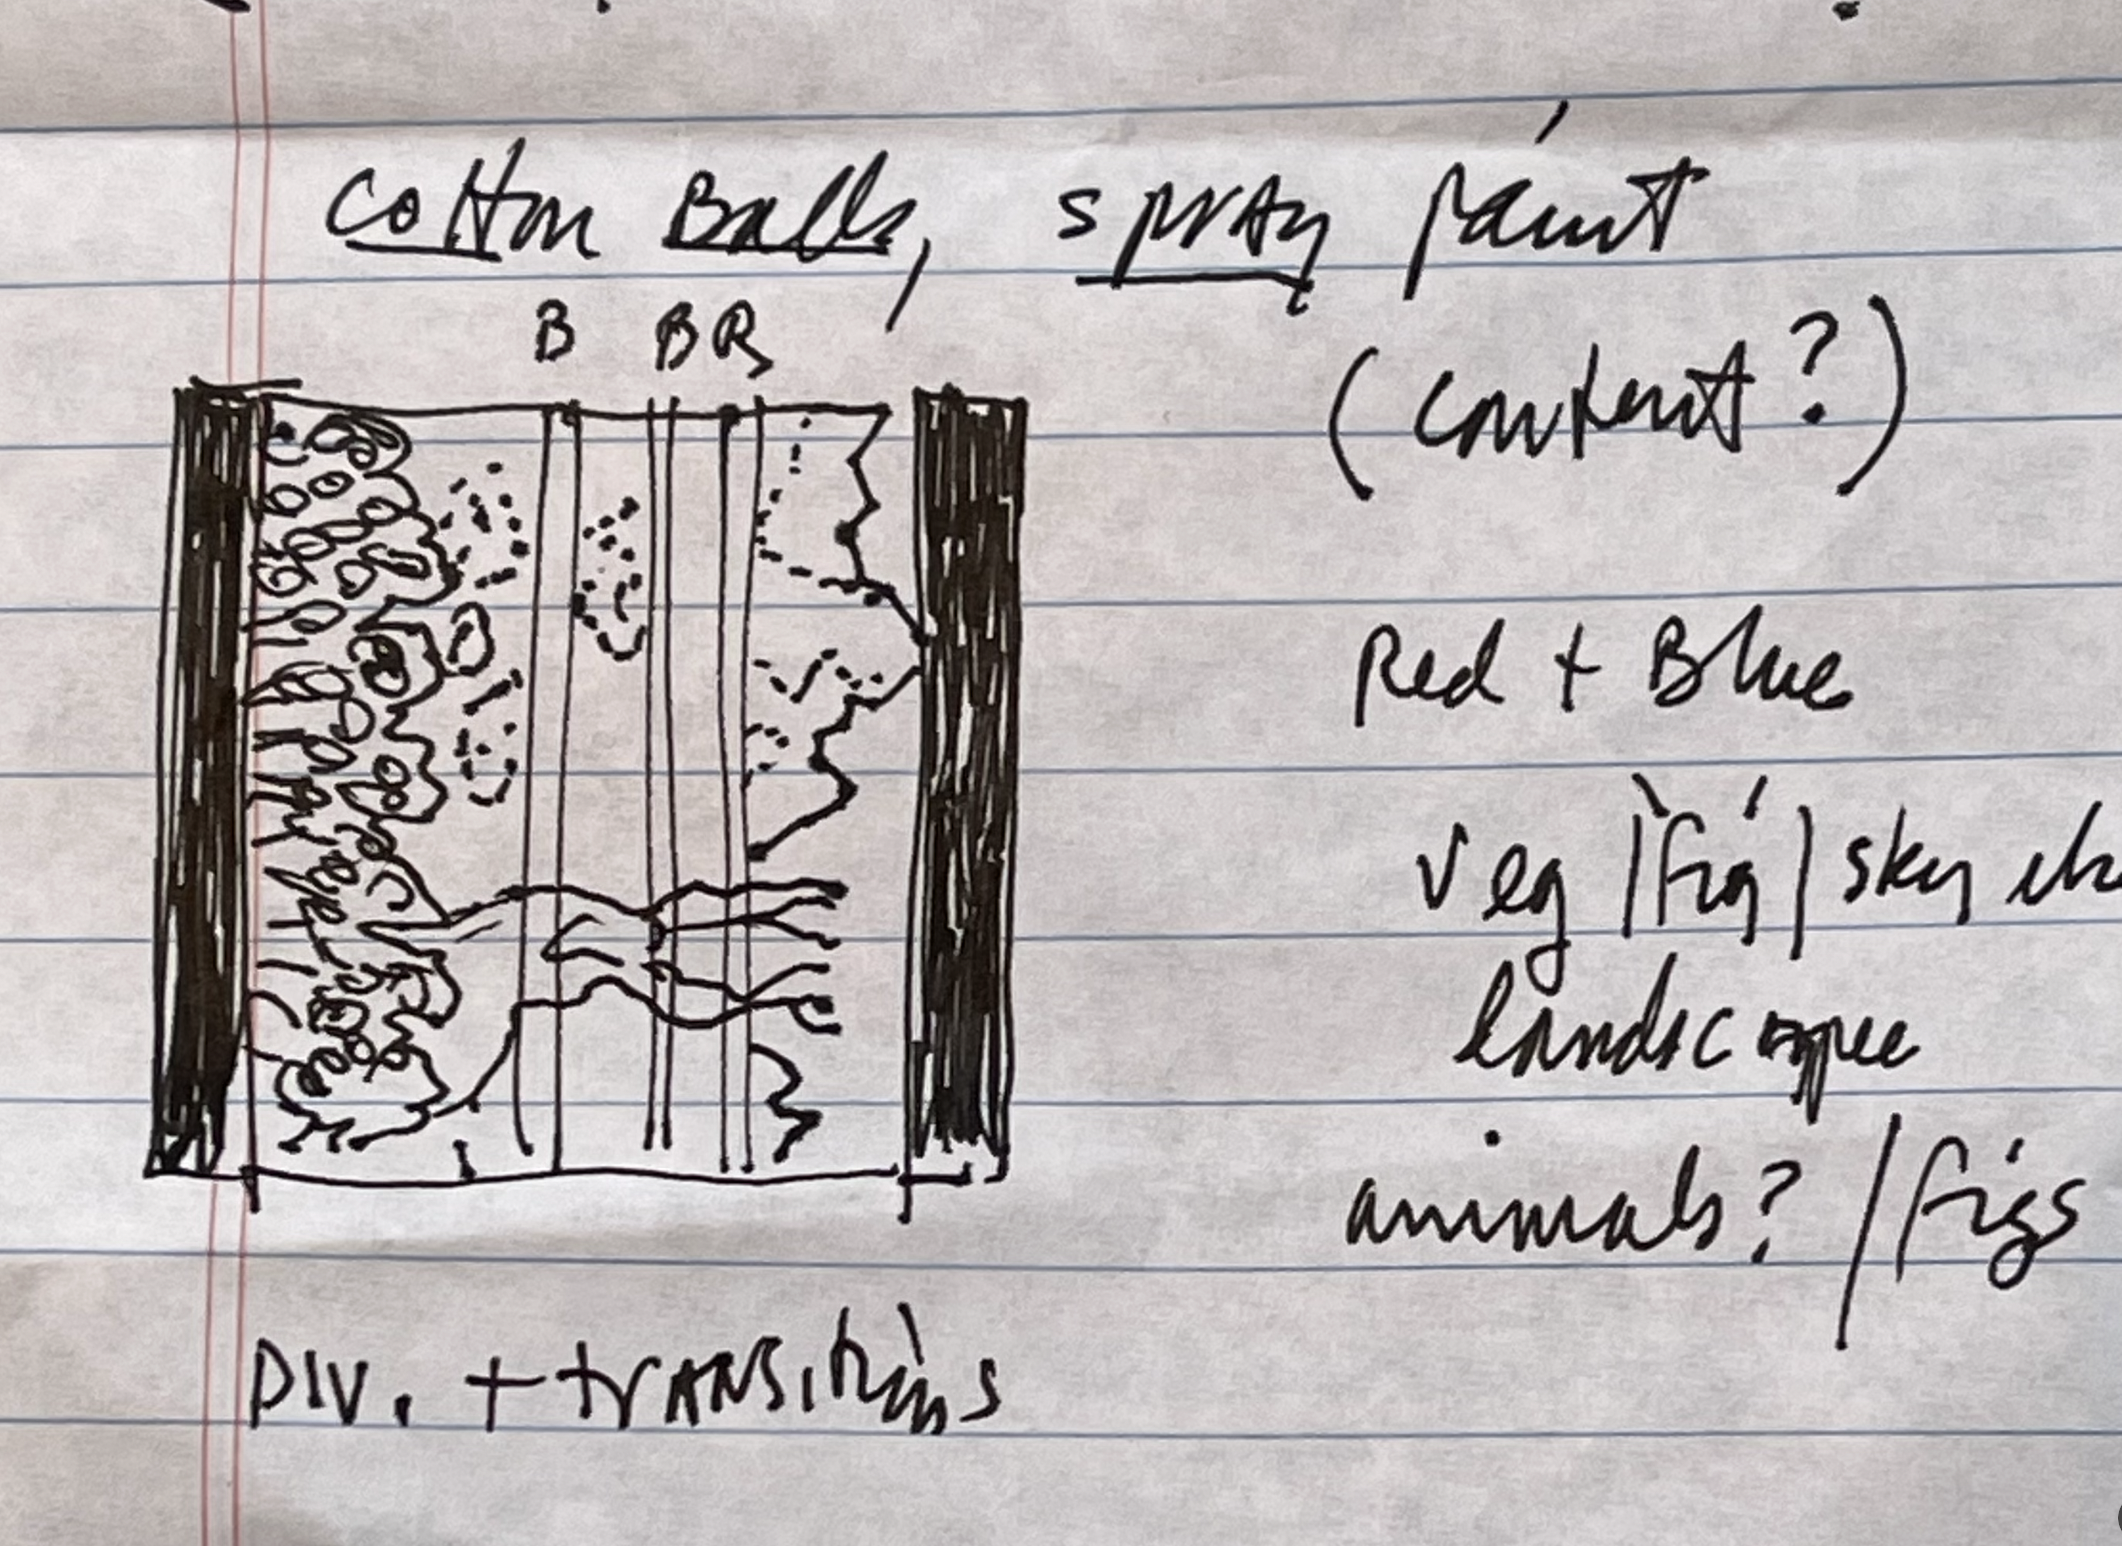 Cotton Balls, spray paint
B B R
(content?)
Red + Blue
veg | fig | sky
landscape
animals? / figs
DIV. + transitions